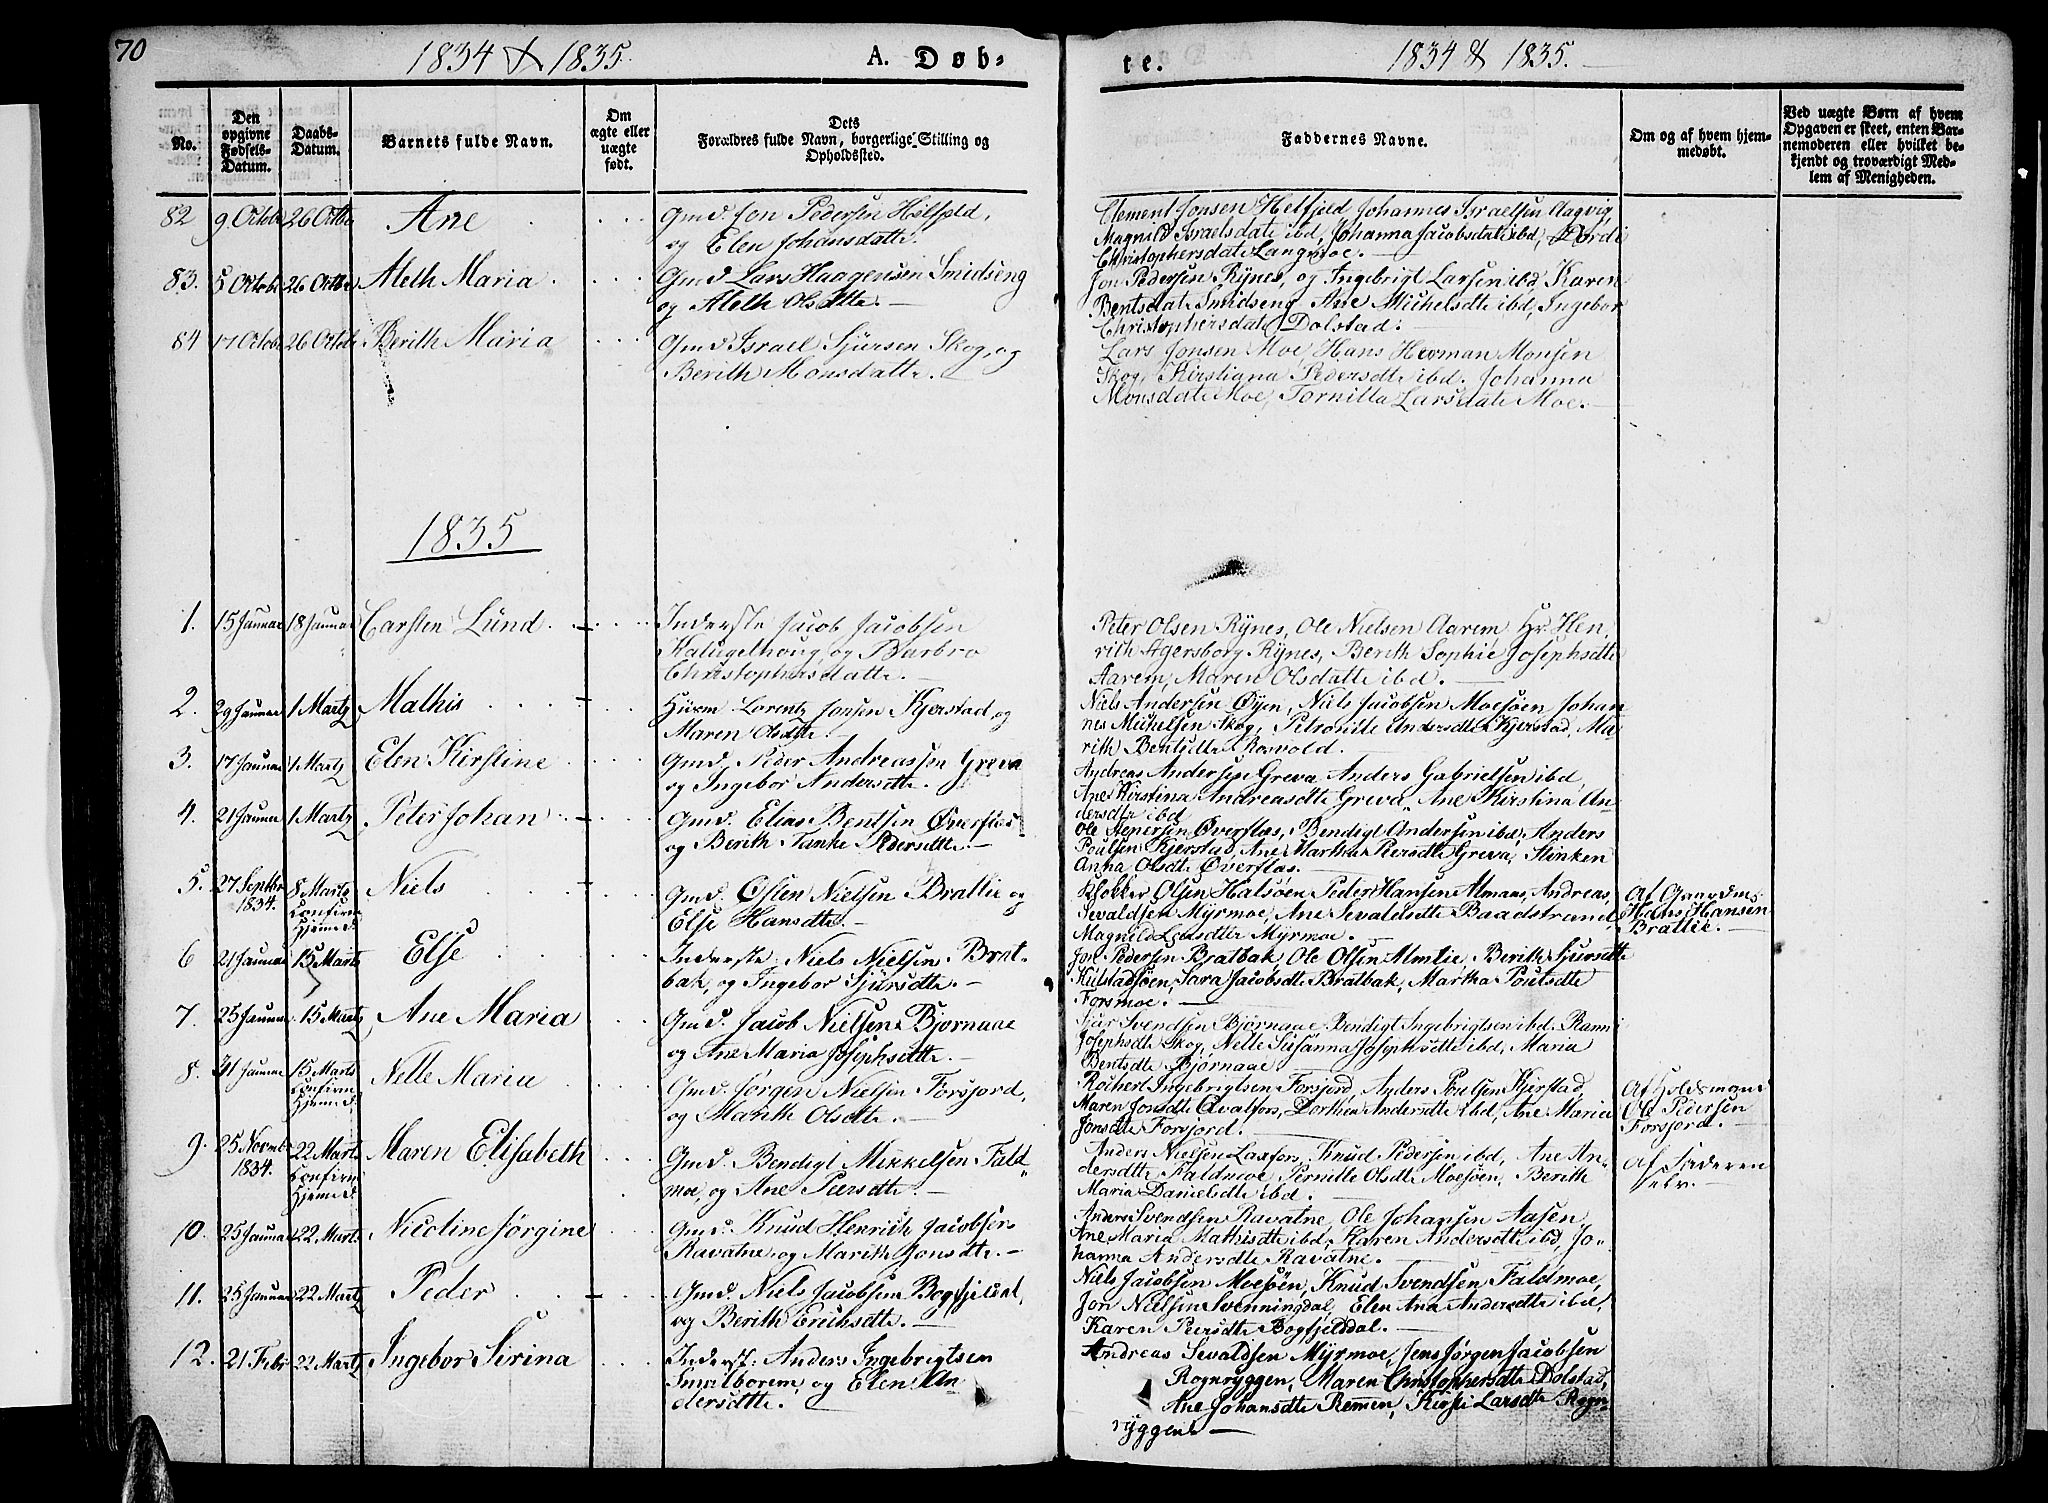 70
1834 & 1835.
A. Døb-
te.
1834 & 1835.
No.
Den opgivne Fødsels-Datum.
Daabs-Datum.
Barnets fulde Navn.
Om ægte eller uægte født.
Dets
Forældres fulde Navn, borgerlige Stilling og Opholdssted.
Faddernes Navne.
Om og af hvem hjem-
medøbt.
Ved uægte Børn af hvem
Opgaven er skeet, enten Bar-
nemoderen eller hvilket be-
kjendt og troværdigt Med-
lem af Menigheden.
82 9 Octobr 26 Octbr Ane
Gmd. Jon Pedersen Helfjeld,
og Elen Johansdatte.
Clement Jonsen Helfjeld, Johannes Israelsen Aagvig
Magnild Israelsdate ibd, Johanna Jacobsdate ibd, Dordi
Christophersdate Langmoe.
83. 5 Octobr 26 Octbr Aleth Maria
Gmd Lars Haagensen Smidseng
og Aleth Olsdtte.
Jon Pedersen Rynes, og Ingebrigt Larsen ibd, Karen
Bentsdate Smidseng Ane Michelsdte ibd, Ingebor
Christophersdate Dolstad.
84 17 Octobr 26 Octobr Berith Maria
Gmd Israel Sjursen Skog, og
Berith Monsdatte.
Lars Jonsen Moe, Hans Herman Monsen
Skog, Kirstiana Pedersdte ibd. Johanna
Monsdate Moe, Tornilla Larsdate Moe.
1835
1. 15 Januar 18 Januar Carsten Lund
Inderste Jacob Jacobsen
Kalugelhoug, og Barbro
Christophersdatte.
Peter Olsen Rynes, Ole Nielsen Aarem, Hr. Hen
rith Agersborg Rynes, Berith Sophie Josephsdte
Aarem, Maren Olsdatte ibd.
2. 29 Januar 1 Martz Mathis
Lorentz Jonsen Kjerstad, og
Maren Olsdtte.
Niels Andersen Øyen, Niels Jacobsen Moesøen, Johan
nes Michelsen Skog, Petronile Andersdtte Kjerstad, Ma-
rith Bentsdtte
3. 17 Januar 1 Martz Elen Kirstine
Gmd. Peder Andreassen Greva
og Ingebor Andersdtte.
Andreas Andersen Greva Anders Gabrielsen ibd,
Ane Kirstina Andreasdtte Greva, Ane Kirstina An
dersdtr ibd
4. 21 Januar 1 Martz Peter Johan
Gmd. Elias Bentsen Øverflos
og Berith Tanke Pedersdtte.
Ole Øverflos, Bendigt Andersen ibd, Anders
Poulsen Kjerstad, Ane Martha Peersdtte Greva,
Anna Olsdte Øverflos.
5. 27 Septbr 1834. 8 Marts Confirm Hjemed. Niels
Gmd. Østen Nielsen Brattlie og
Else Hansdtte.
Klokker Olsen Halsøen, Peder Hansen Almaas, Andreas
Sevaldsen Myrmoe, Ane Sevaldsdte Baadstrand
Magnild Larsdtte Myrmoe.
Af Gaardm.
Hans Hansen
Brattlie.
6 21 Januar 15 Marts Else
Inderste: Niels Nielsen Brat-
bak, og Ingebor Sjursdtte.
Jon Pedersen Bratbak, Ole Olsen Almlie, Berith Sjursdtte
Kulstadsjøen, Sara Jacobsdte Bratbak, Martha Poulsdte
Forsmoe.
7. 23 Januar 15 Martz Ane Maria
Gmd. Jacob Nielsen Bjornaae
og Ane Maria Josephsdtte.
Sjur Svendsen Bjørnaae Bendigt Ingebrigtsen ibd. Ranni
Josephsdte Skog, Nelle Susanna Josephsdtte ibd, Maria
Bentsdte Bjørnaae
8. 31 Januar 15 Marts Confirm Hjemed. Nelle Maria
Gmd Jørgen Nielsen Forsjord,
og Marith Olsdtte.
Rochert Ingebrigtsen Forsjord, Anders Poulsen Kjerstad,
Maren Jonsdte Qvalfors, Dorthea Andersdtte ibd, Ane Maria
Jonsdte Forsjord.
Af Holdsmand
Ole Pedersen
Forsjord.
9. 25 Novmb 1834. 22 Mart. Confirm Hjemed. Maren Elisabeth
Gmd. Bendigt Mikkelsen Fald
moe, og Ane Peersdte.
Anders Nielsen Laxfors, Knud Pedersen ibd, Ane An-
dersdtte Faldmoe Pernille Olsdte Moesøen, Berith
Maria Danielsdte ibd.
Af Faderen
selv.
10. 25 Januar 22 Mart. Nicoline Jørgine
Gmd. Knud Henrich Jacobsen
Ravatne og Marith Jonsdte.
Anders Svendsen Ravatne, Ole Johansen Aasen,
Ane Maria Mathisdte ibd, Karen Andersdtte ibd, Jo-
hanna Andersdte Ravatne.
11. 25 Januar 22 Martz Peder
Gmd. Niels Jacobsen Bogfjeldal,
og Berith Erichsdtte.
Niels Jacobsen Moesøen, Knud Svendsen Faldmoe,
Jon Nielsen Svenningdal, Elen Ana Andersdtte ibd,
Karen Peersdte Bogfjelddal.
12. 21 Febr 22 Martz Ingebor Sirina
Inderst: Anders Ingebrigtsen
Smilborem, og Elen An
dersdtte.
Andreas Sevaldsen Myrmoe, Jens Jørgen Jacobsen
Rognryggen, Maren Christophersdte Dolstad,
Ane Johansdte Remen, Kirsti Larsdte Rogn-
ryggen